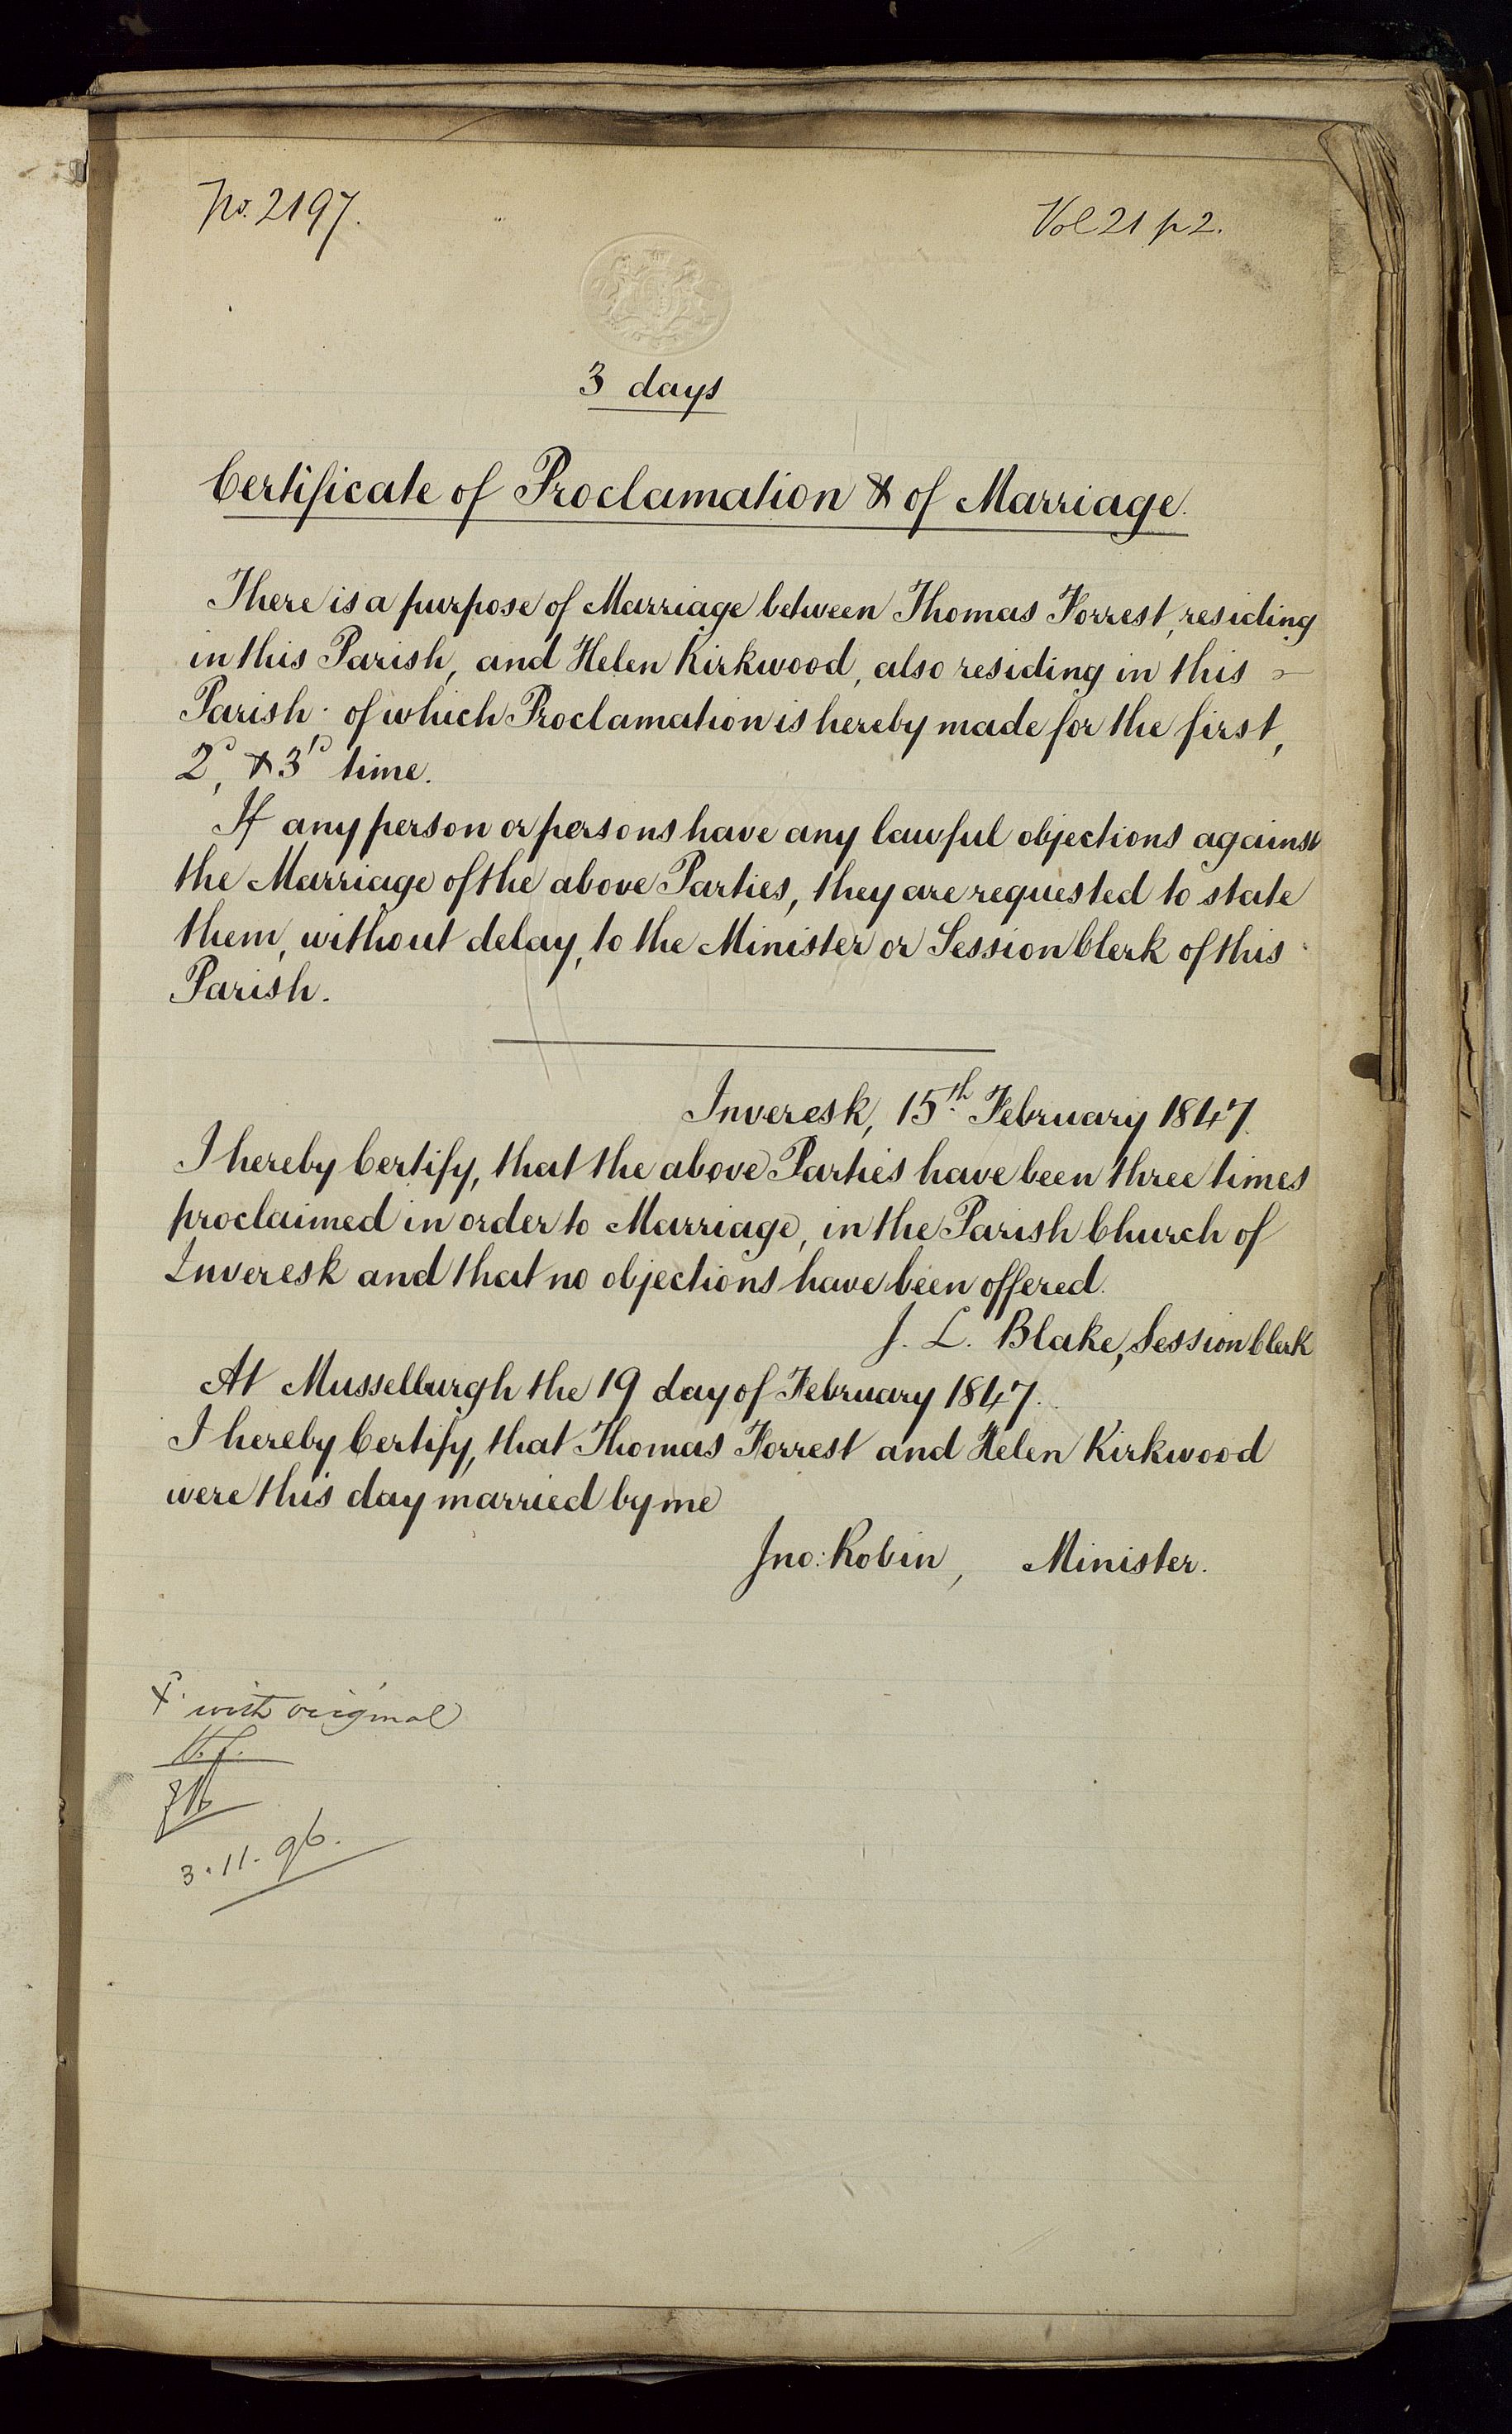 No. 2197.
Vol 21 p 2.
3 days
Certificate of Proclamation & of Marriage.
There is a purpose of Marriage between Thomas Forrest, residing
in this Parish, and Helen Kirkwood, also residing in this
Parish · of which Proclamation is hereby made for the first,
2d, & 3rd time.
If any person or persons have any lawful objections against
the Marriage of the above Parties, they are requested to state
them, without delay, to the Minister or Session Clerk of this
Parish.
Inveresk, 15th February 1847.
I hereby Certify, that the above Parties have been three times
proclaimed in order to Marriage, in the Parish Church of
Inveresk and that no objections have been offered.
J. L. Blake, Session Clerk
At Musselburgh the 19 day of February 1847.
I hereby Certify, that Thomas Forrest and Helen Kirkwood
were this day married by me
Jno: Robin, Minister.
with original
3. 11. 96.